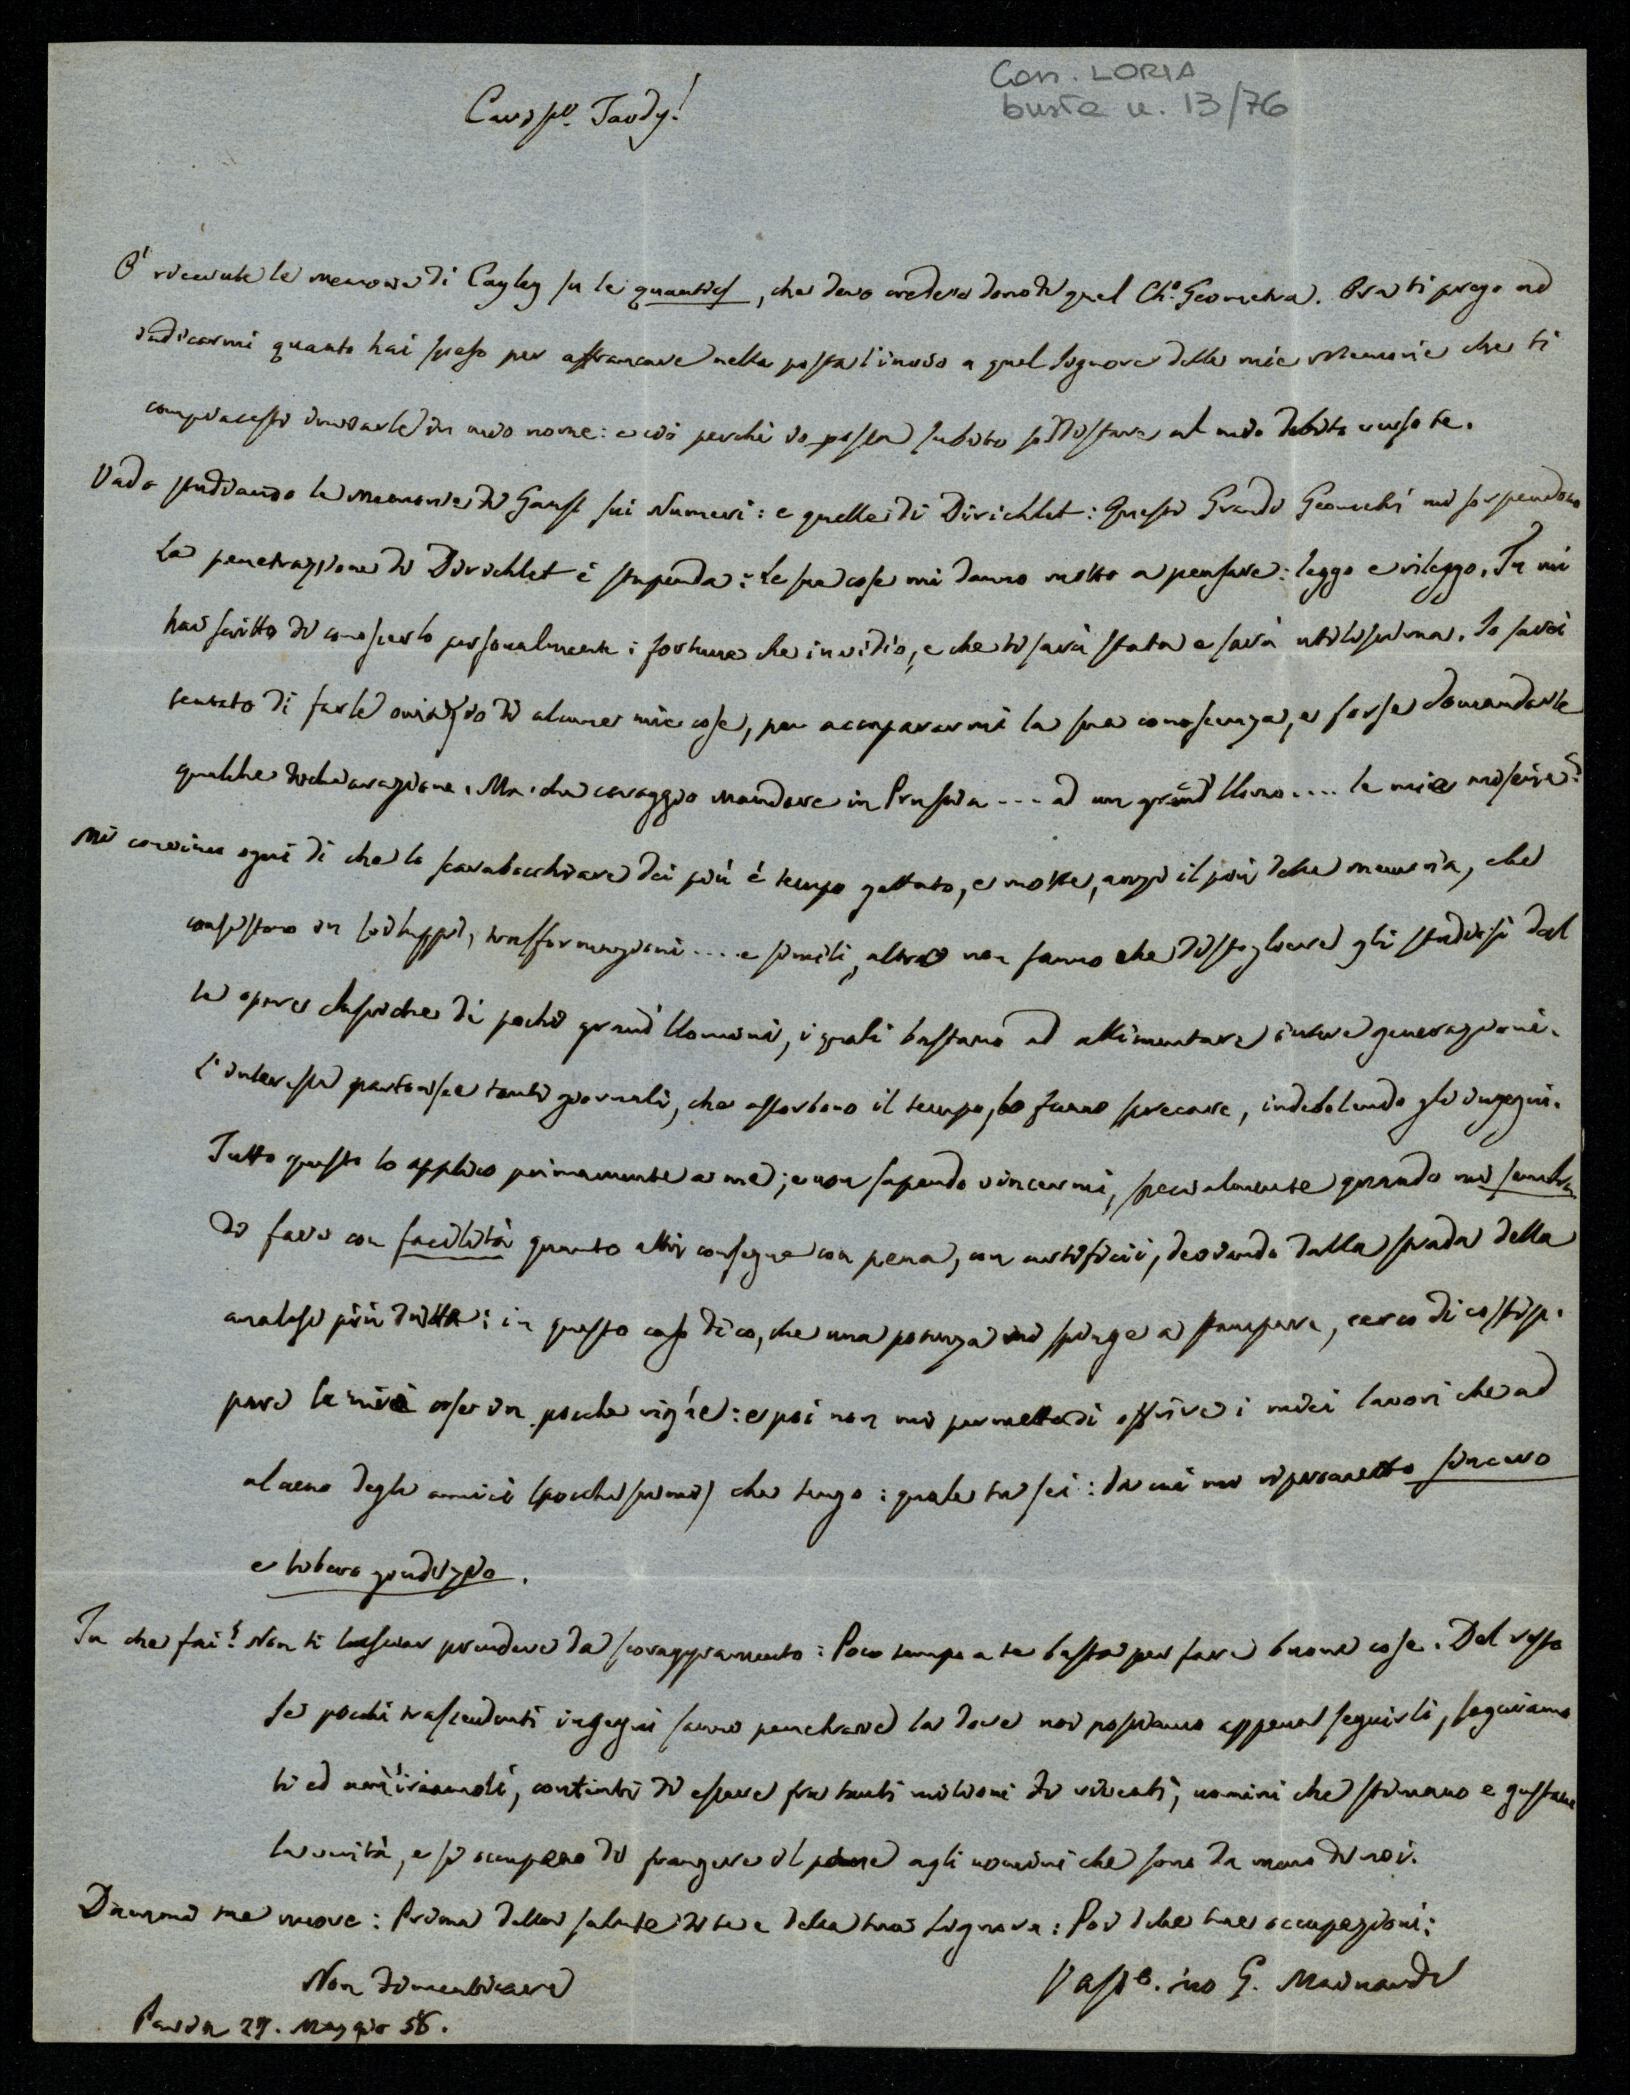 Con. LORIA
busta n. 13/76
Cariss.o Tardy!
O' ricevute le memorie di Cayley su le quantics, che devo credere dono di quel Ch.o Geometra. Ora ti prego ad
indicarmi quanto hai speso per affrancare nella posta l'invio a quel Signore delle mie Memorie che ti
compiacesti inviarle in mio nome: e ciò perchè io possa subito soddisfare al mio debito verso te.
Vado studiando le Memorie di Gauss sui Numeri: e quelle di Dirichlet: Questi Grandi Geometri mi sorprendono
La penetrazione di Dirichlet è stupenda: le sue cose mi danno molto a pensare: leggo e rileggo. Tu mi
hai scritto di conoscerlo personalmente: fortuna che invidio, e che ti sarà stata e sarà utilissima. Io sarei
tentato di farle omaggio di alcune mie cose, per accapararmi la sua conoscenza, e forse domandarle
qualche dichiarazione. Ma che coraggio mandare in Prussia --- ad un grand'Uomo .... le mie miserie?
Mi convinco ogni dì che lo scarabocchiare dei più è tempo gettato, e molte, anzi il più delle memorie, che
consistono in sviluppi, trasformazioni .... e simili, altro non fanno che distogliere gli studiosi dal
le opere classiche di pochi grand'Uomini, i quali bastano ad allimentare intere generazioni.
L'interesse partorisce tanti giornali, che assorbono il tempo, lo fanno sprecare, indebolendo gli ingegni.
Tutto questo lo applico primamente a me; e non sapendo vincermi, specialmente quando mi sembra
di fare con facilità quanto altri consegue con pena, con artificii, deviando dalla strada della
analisi più diretta: in questo caso dico, che una potenza mi spinge a stampare, cerco di costip.
pare le mie cose in poche righe: e poi non mi permetto di offrire i miei lavori che ad
alcuno degli amici (pochissimi) che tengo: quale tu sei: da cui mi riprometto sincero
e libero giudizio.
Tu che fai? Non ti lasciar prendere da scoraggiamento: Poco tempo a te basta per fare buone cose. Del resto
se pochi trascendenti ingegni sanno penetrare là dove noi possiamo appena seguirli, seguiamo
li ed ammiriamoli, contenti di essere fra tanti milioni di viventi, uomini che stimano e gustano
la verità, e si occupano di frangere il pane agli uomini che sono da meno di noi.
Dammi tue nuove: Prima della salute di te e della tua Signora: Poi delle tue occupazioni:
Non dimenticare
l'aff.o tuo G. Mainardi
Pavia 29. Maggio 56.